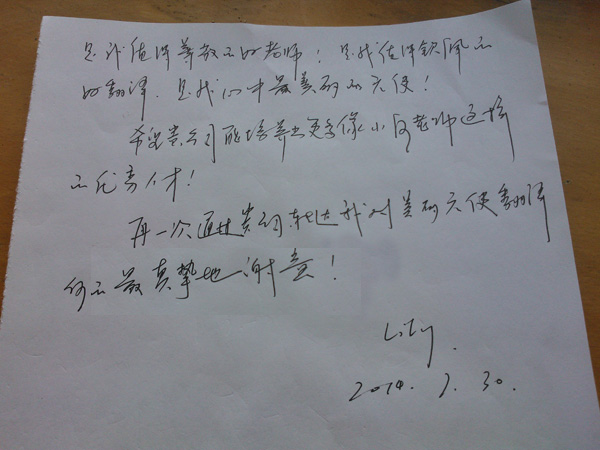 是我值得尊敬的老师！是我值得钦佩的
的翻译.是我心中最美丽的天使！
希望贵公司能培养出更多像小何老师这样
的优秀人才！
再一次通过贵司转达我对美丽天使翻译
何的最真挚地谢意！
Lily.
2014. 7. 30.